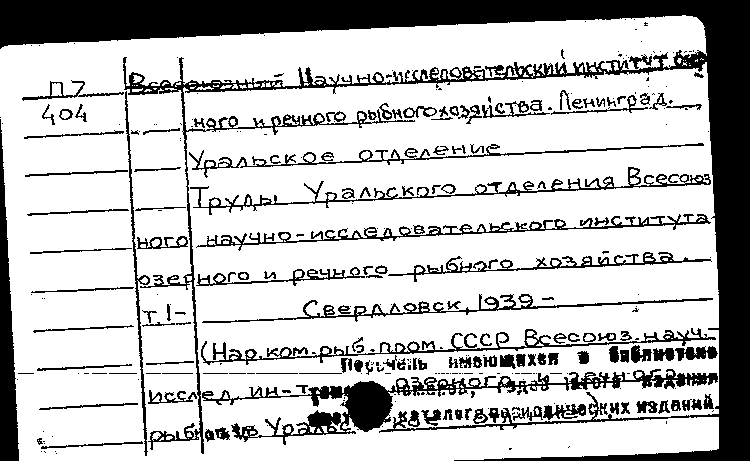 П7 Всесоюзный Научно-исследовательский институт озер
404 ного и речного рыбного хозяйства. Ленинград.
Уральское отделение
Труды Уральского отделения Всесоюз
ного научно-исследовательского института
озерного и речного рыбного хозяйства.
т.1- Свердловск, 1939-
(Нар.ком.рыб.пром. СССР Всесоюз.науч.-
Перечень имеющихся в библиотеке
исслед. ин-т озерного и речного
номеров, годов этого издания
каталоге периодических изданий.
рыбн Уральс